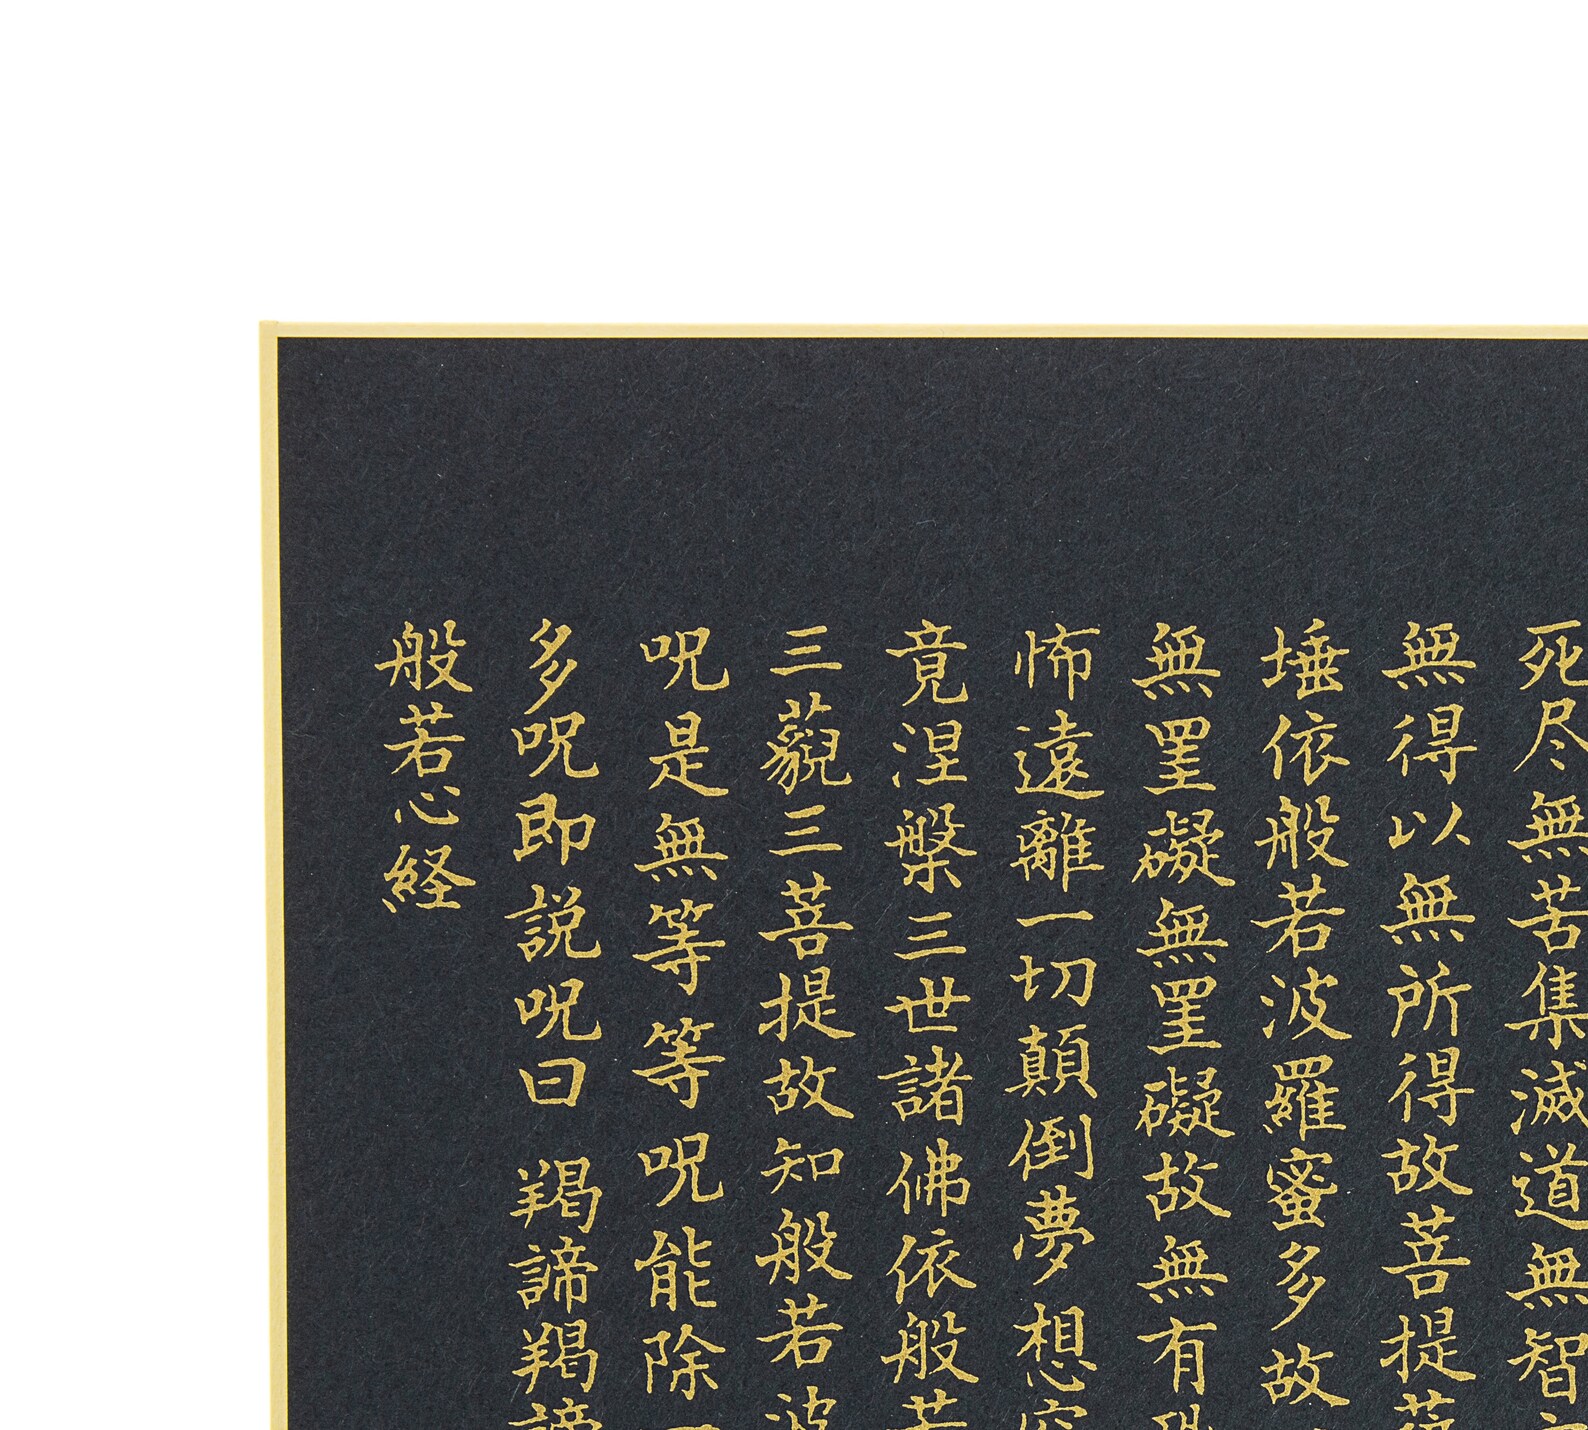 死尽無苦集滅道無智
無得以無所得故菩提
埵依般若波羅蜜多故
無罣礙無罣礙故無有
怖遠離一切顛倒夢想
竟涅槃三世諸佛依般
三藐三菩提故知般若
呪是無等等呪能除
多呪即説呪曰 羯諦羯
般若心経